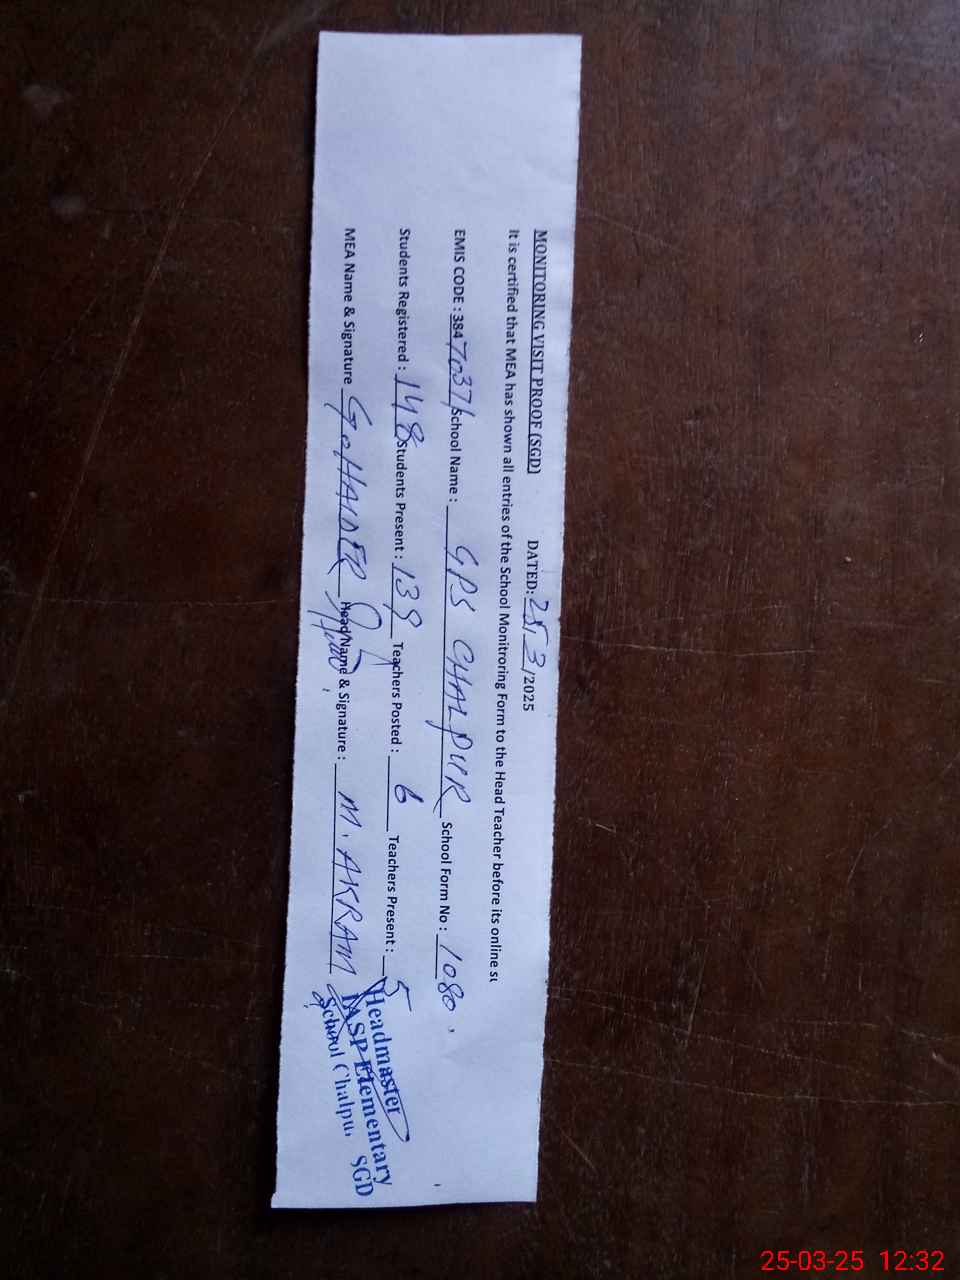 MONITORING VISIT PROOF (SGD) DATED: 25/3/2025
It is certified that MEA has shown all entries of the School Monitroring Form to the Head Teacher before its online su
EMIS CODE : 38470371 School Name : GPS CHALPUR School Form No : 1080
Students Registered : 148 Students Present : 139 Teachers Posted : 6 Teachers Present : 5
MEA Name & Signature G. HAIDER Head Name & Signature : M. AKRAM
Headmaster
Elementary
School Chalpur SGD
25-03-25 12:32